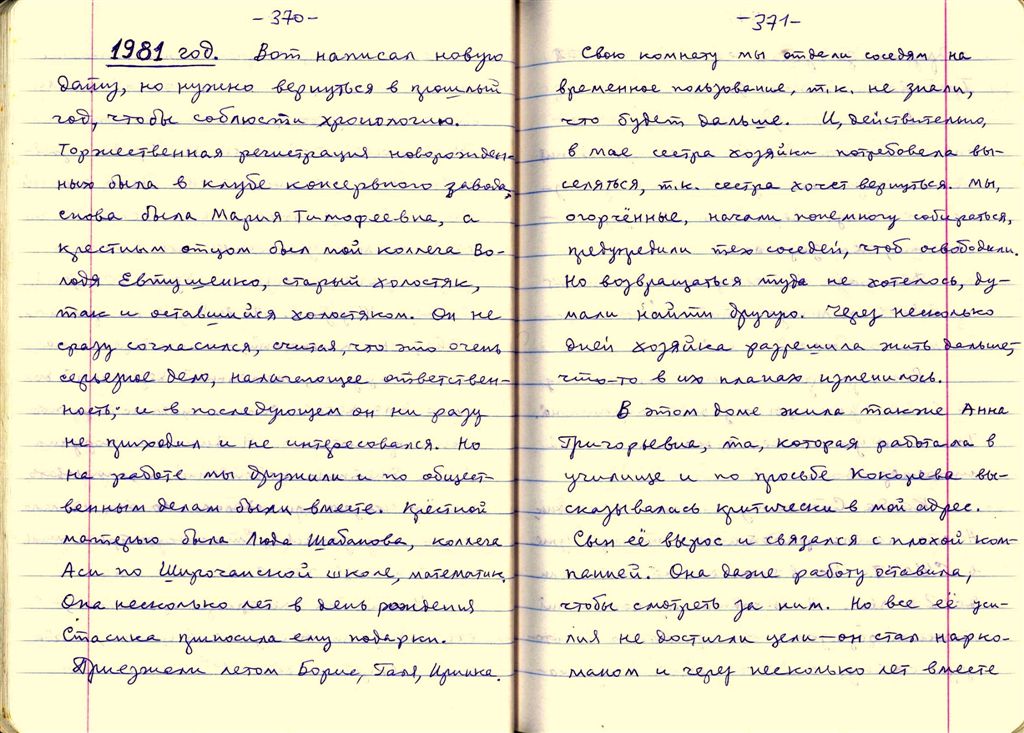 -370-
1981 год. Вот написал новую
дату, но нужно вернуться в прошлый
год, чтобы соблюсти хронологию.
Торжественная регистрация новорожден-
ных была в клубе консервного завода,
снова была Мария Тимофеевна, а
крестным отцом был мой коллега Во-
лодя Евтушенко, старый холостяк,
так и оставшийся холостяком. Он не
сразу согласился, считая, что это очень
серьезное дело, налагающее ответствен-
ность; и в последующем он ни разу
не приходил и не интересовался. Но
на работе мы дружили и по общест-
венным делам были вместе. Крёстной
матерью была Люда Шабанова, коллега
Аси по Широчанской школе, математик,
Она несколько лет в день рождения
Стасика приносила ему подарки.
Приезжали летом Борис, Галя, Иринка.
-371-
Свою комнату мы отдали соседям на
временное пользование, т.к. не знали,
что будет дальше. И, действительно,
в мае сестра хозяйки потребовала вы-
селяться, т.к. сестра хочет вернуться. Мы,
огорчённые, начали понемногу собираться,
предупредили тех соседей, чтоб освободили.
Но возвращаться туда не хотелось, ду-
мали найти другую. Через несколько
дней хозяйка разрешила жить дальше,
что-то в их планах изменилось.
В этом доме жила также Анна
Григорьевна, та, которая работала в
училище и по просьбе Кокорева вы-
сказывалась критически в мой адрес.
Сын её вырос и связался с плохой ком-
панией. Она даже работу оставила,
чтобы смотреть за ним. Но все её уси-
лия не достигли цели — он стал нарко-
маном и через несколько лет вместе